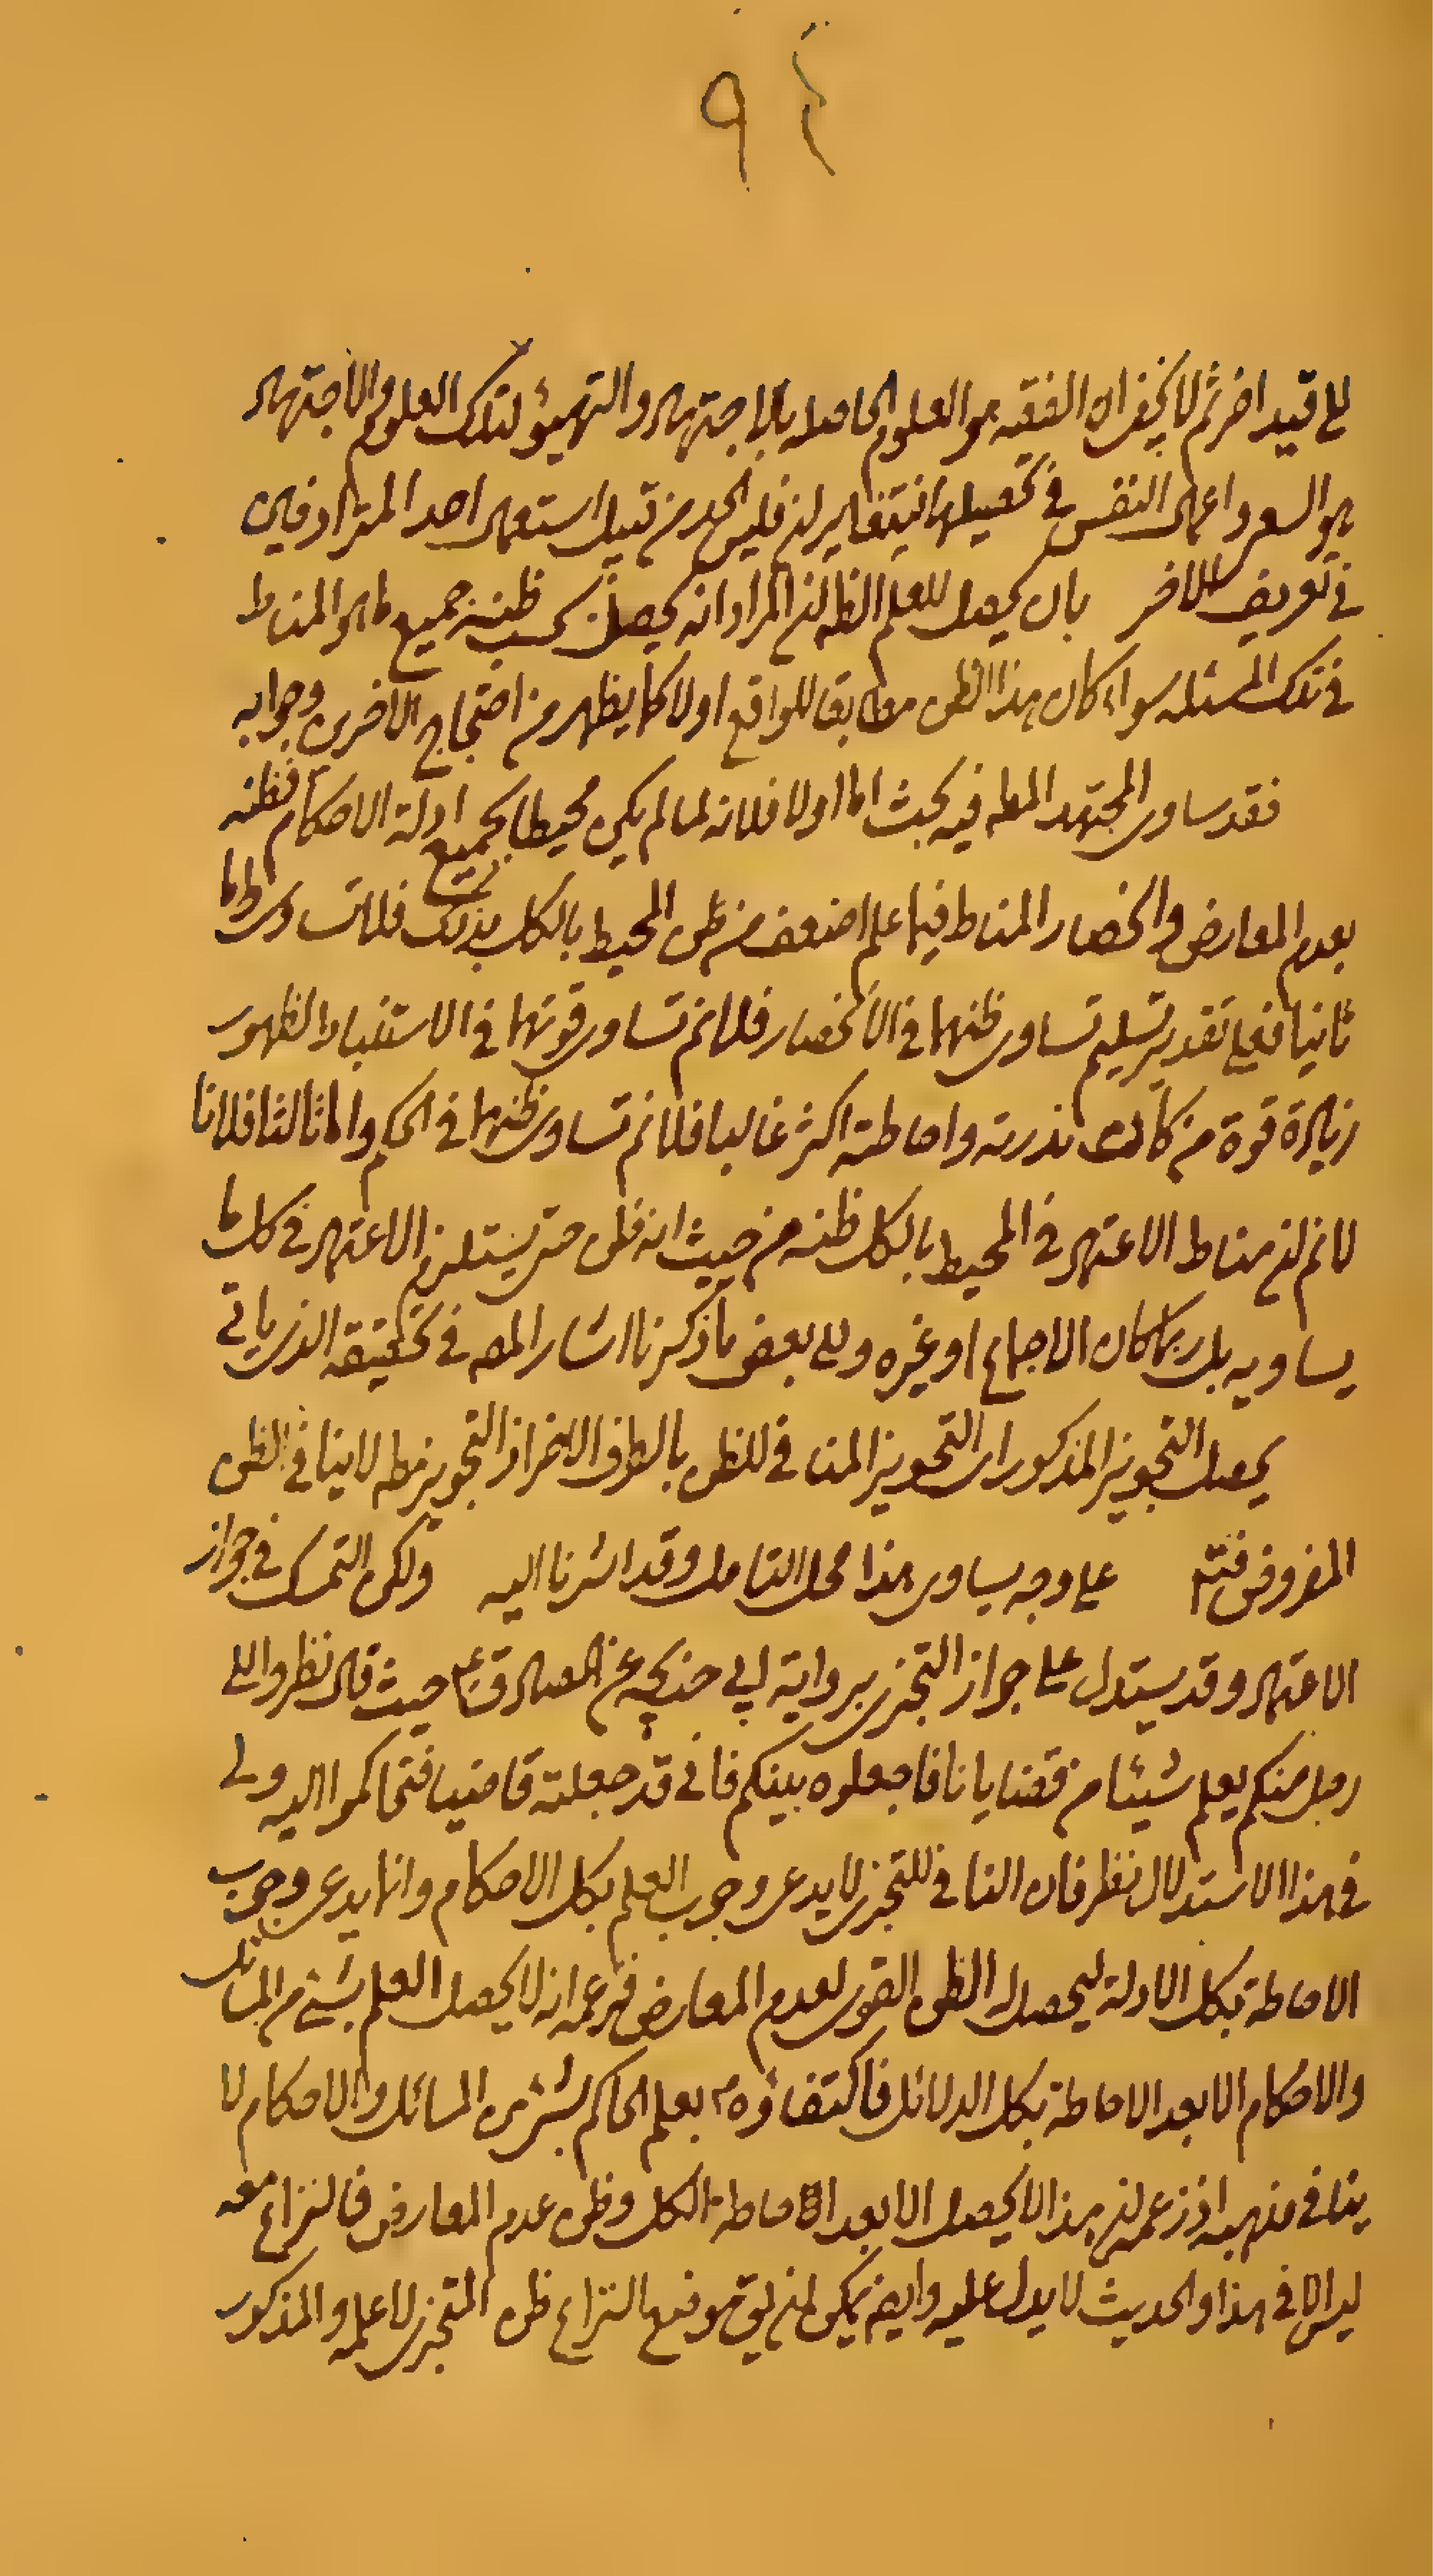 ٩٤
الى قيد اخر ثم لا يخفى ان الفقه هو العلوم الحاصلة بالاجتهاد والتهيؤ لتلك العلوم والاجتهاد
هو السعي واعمال النفس في تحصيلها فيتغايران فليس الحد من قبيل استعمال احد المترادفين
في تعريف الاخر بان يحصل للعلم الظ ان المراد انه يحصل بحسب ظنه جميع ما هو المناط
في تلك المسئلة سواء كان هذا الظن مطابقا للواقع اولا كما يظهر من احتجاج الاخرين وجوابه
فقد ساوى المجتهد المط فيه بحث اما اولا فلانه لما لم يكن محيطا بجميع ادلة الاحكام فظنه
بعدم المعارض وانحصار المناط فيما علم اضعف من ظن المحيط بالكل بذلك فلا تساوي واما
ثانيا فعلى تقدير تسليم تساوي ظنهما في الانحصار فلا نم تساوي قوتهما في الاستنباط لظهور
زيادة قوة من كان تدربه واحاطته اكثر غالبا فلا نم تساوي ظنهما في الحكم واما ثالثا فلانا
لا نم ان مناط الاعتماد في المحيط بالكل ظنه من حيث انه ظن حتى يستلزم الاعتماد في كل ما
يساويه بل ربما كان الاجماع او غيره والى بعض ما ذكرنا اشار المص في تحقيقه الذي ياتي
يحصل التجويز المذكور اي التجويز المنافي للظن بالطرف الاخر اذ التجويز مط لا ينافي الظن
المفروض فتم على وجه يساوي هذا محل التامل وقد اشرنا اليه ولكن التمسك في جواز
الاعتماد وقد يستدل على جواز التجزي برواية ابي خديجة عن الصادق ع حيث قال انظروا الى
رجل منكم يعلم شيئا من قضايانا فاجعلوه بينكم فاني قد جعلته قاضيا فتحاكموا اليه ولي
في هذا الاستدلال نظر فان النافي للتجزي لا يدعي وجوب العلم بكل الاحكام وانما يدعي وجوب
الاحاطة بكل الادلة ليحصل له الظن القوي لعدم المعارض فزعمه انه لا يحصل العلم بشيء من المسائل
والاحكام الا بعد الاحاطة بكل الدلائل فاكتفاؤه ع بعلم الحاكم بشيء من المسائل والاحكام لا
ينافي مذهبه اذ زعمه ان هذا لا يحصل الا بعد الاحاطة بالكل وظن عدم المعارض فالنزاع معه
ليس الا في هذا والحديث لا يدل عليه وايض يمكن ان يق موضع النزاع ظن المتجزي لا علمه والمذكور